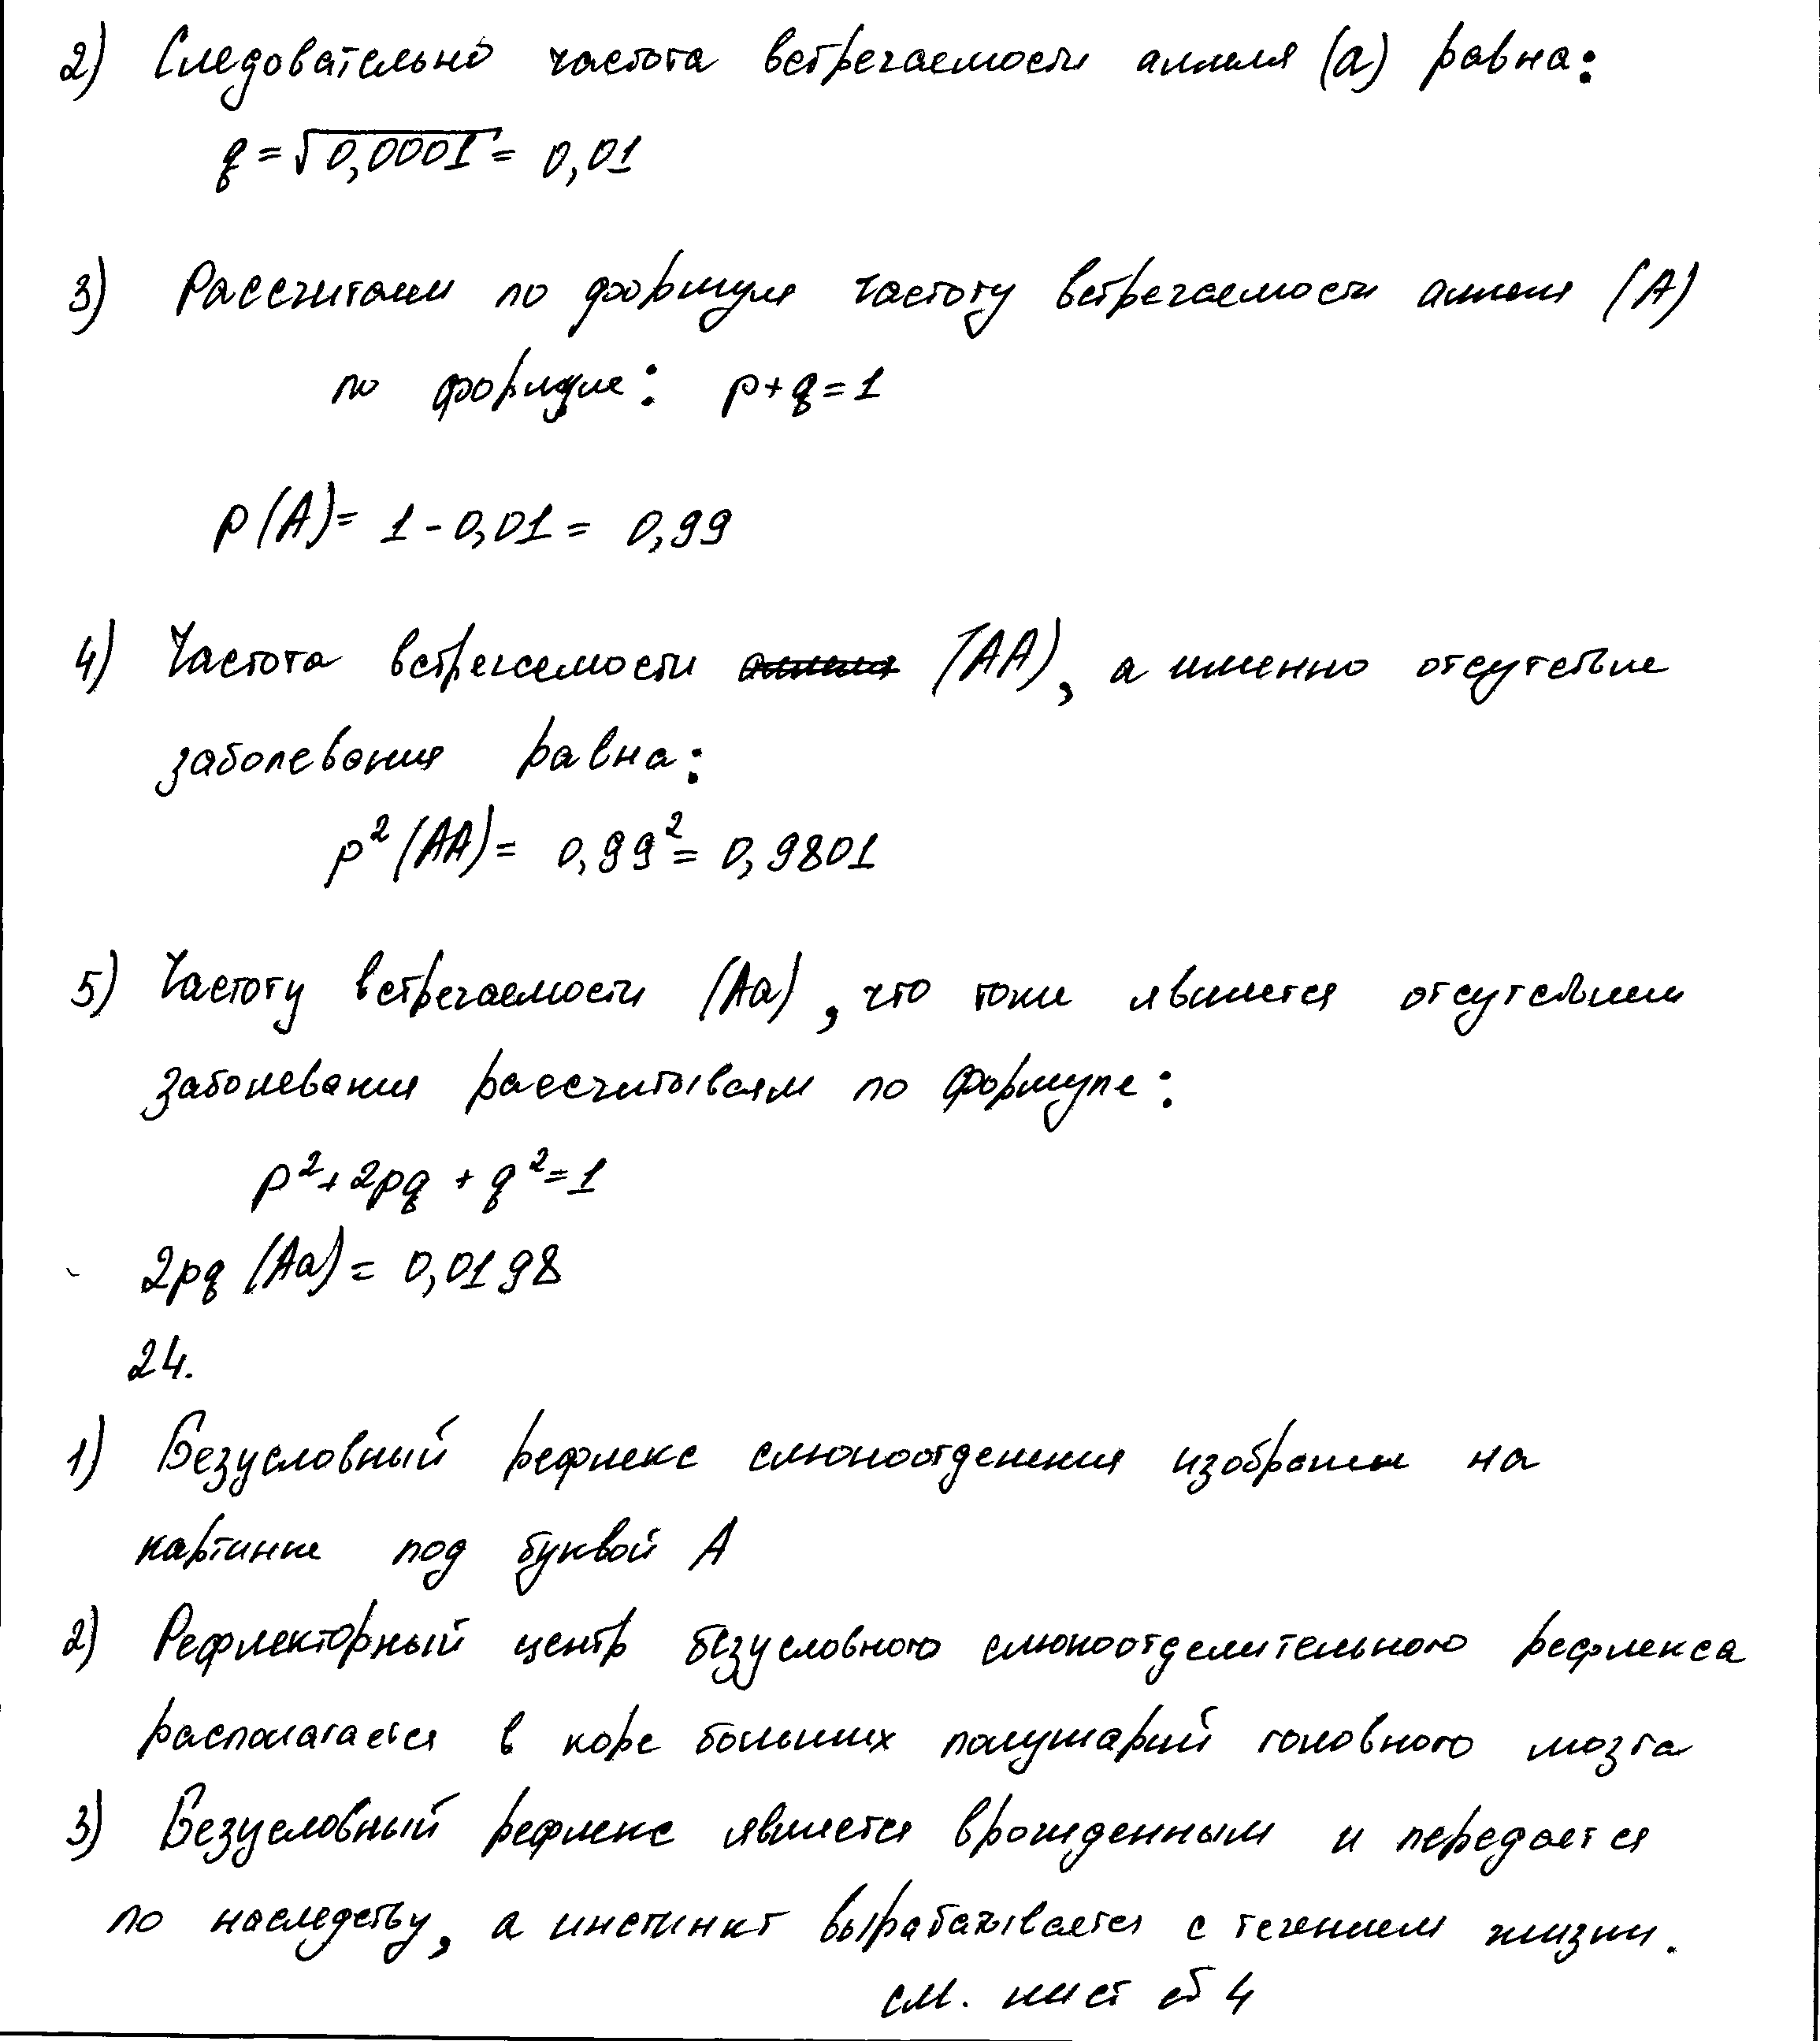 2) Следовательно частота встречаемости аллеля (а) равна:
q = √0,0001 = 0,01
3) Рассчитаем по формуле частоту встречаемости аллеля (А)
по формуле: p+q=1
p(A)= 1-0,01 = 0,99
4) Частота встречаемости (АА), а именно отсутствие
заболевания равна:
p²(AA)= 0,99²= 0,9801
5) Частоту встречаемости (Аа), что тоже является отсутствием
заболевания рассчитываем по формуле:
p²+2pq+q²=1
2pq (Aa) = 0,0198
24.
1) Безусловный рефлекс слюноотделения изображен на
картинке под буквой А
2) Рефлекторный центр безусловного слюноотделительного рефлекса
располагается в коре больших полушарий головного мозга
3) Безусловный рефлекс является врожденным и передается
по наследству, а инстинкт вырабатывается с течением жизни.
см. лист 4